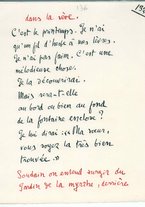 136
dans la rêve.
C'est le printemps. Je n'ai
qu'un fil d'herbe à mes lèvres.
Je n'ai pas faim. C'est une
mélodieuse chose.
Je la découvrirai.
Mais sera-t-elle
au bord ou bien au fond
de la fontaine enclose ?
Je lui dirai : « Ma sœur,
vous voyez la très bien
trouvée. »
Soudain on entend surgir du
jardin de la myrthe, derrière